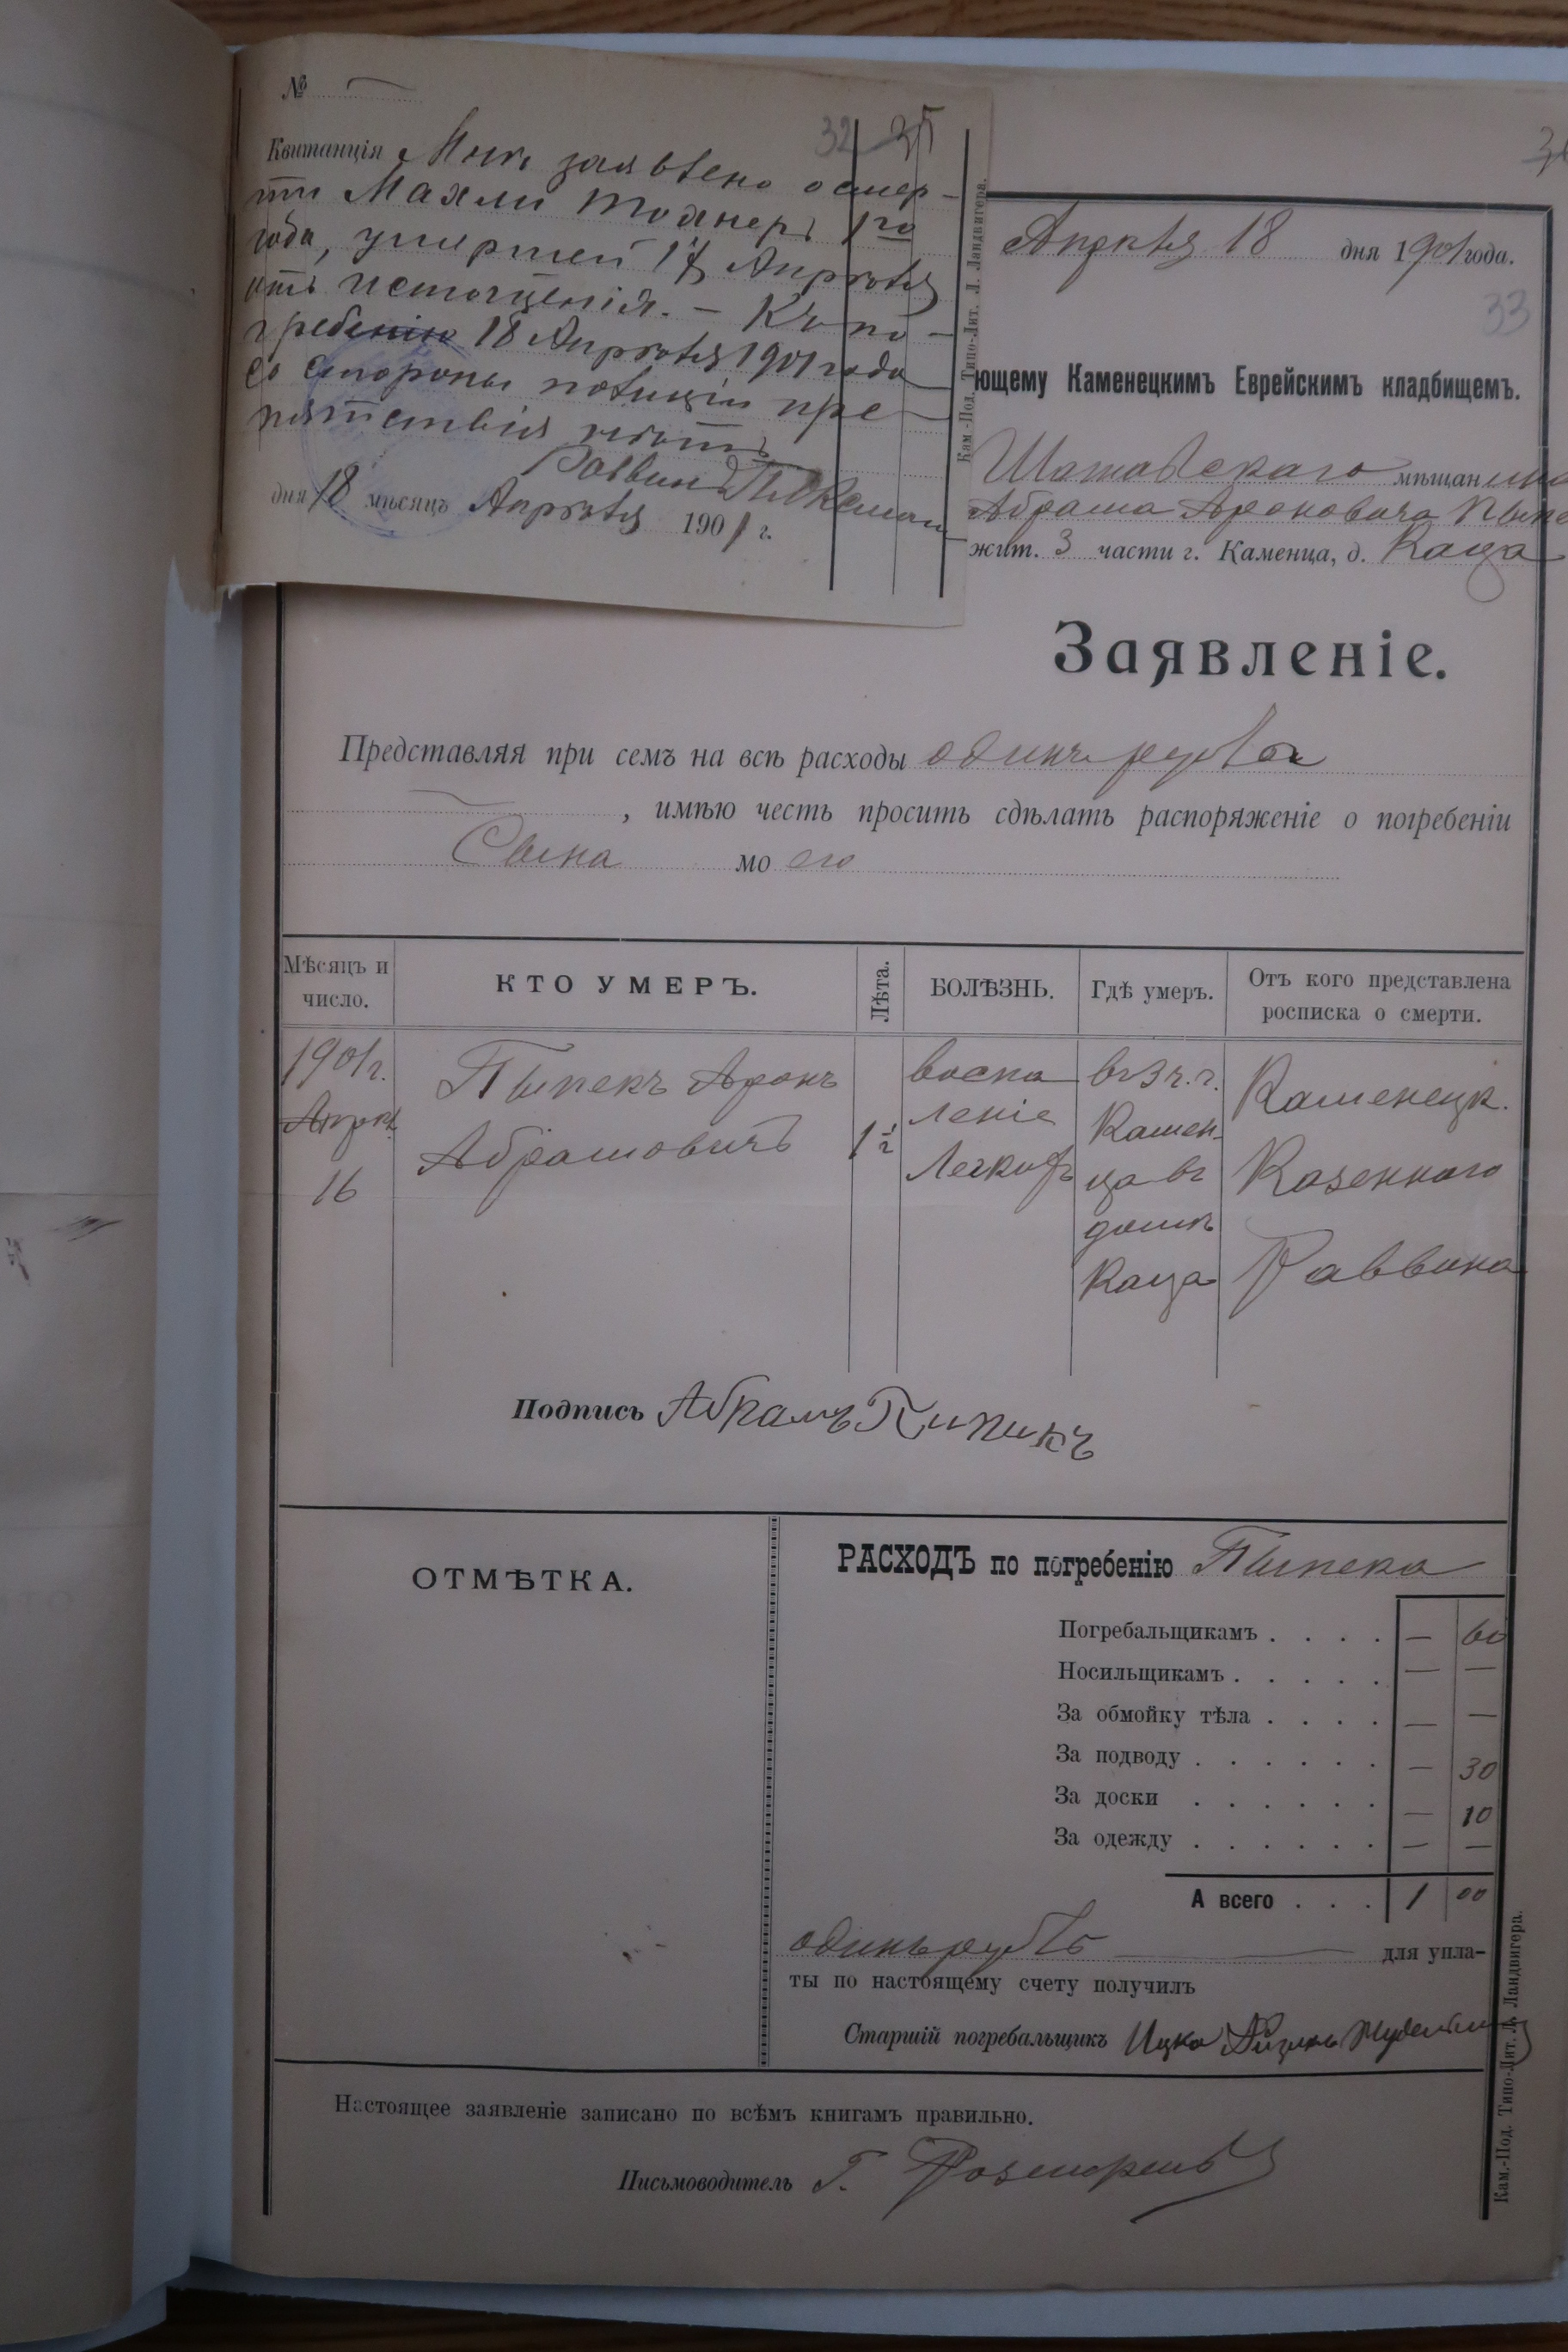 №
32 35
Квитанція Мнѣ заявлено о смер-
ти Махли 1го
года, умершей 17 Апрѣля
отъ истощенія. — Къ по-
гребенію 18 Апрѣля 1901 года
со стороны полиціи пре-
пятствія нѣтъ
Раввинъ
дня 18 мѣсяцъ Апрѣля 1901 г.
Кам.-Под. Типо-Лит. Л. Ландвигера.
Апрѣля 18 дня 1901 года.
33
ющему Каменецкимъ Еврейскимъ кладбищемъ.
Шатавскаго мѣщанина
Абрама Ароновича Пыпе
жит. 3 части г. Каменца, д. Каца
Заявленіе.
Представляя при семъ на всѣ расходы одинъ рубль
, имѣю честь просить сдѣлать распоряженіе о погребеніи
Сына моего
Мѣсяцъ и число.
КТО УМЕРЪ.
Лѣта.
БОЛѢЗНЬ.
Гдѣ умеръ.
Отъ кого представлена росписка о смерти.
1901 г.
Апрѣл.
16
Пыпекъ Аронъ
Абрамовичъ
1 1/2
воспа
леніе
Легкихъ
въ 3 ч. г.
Камен-
ца въ
домѣ
Каца
Каменецк.
Казеннаго
Раввина
Подпись Абрамъ Пипикъ
ОТМѢТКА.
РАСХОДЪ по погребенію Пыпека
Погребальщикамъ . . . . — 60
Носильщикамъ . . . . . — —
За обмойку тѣла . . . . — —
За подводу . . . . . . — 30
За доски . . . . . . — 10
За одежду . . . . . . — —
А всего . . . 1 00
одинъ рубль для упла-
ты по настоящему счету получилъ
Старшій погребальщикъ Ицко
Настоящее заявленіе записано по всѣмъ книгамъ правильно.
Письмоводитель Г.
Кам.-Под. Типо-Лит. Л. Ландвигера.